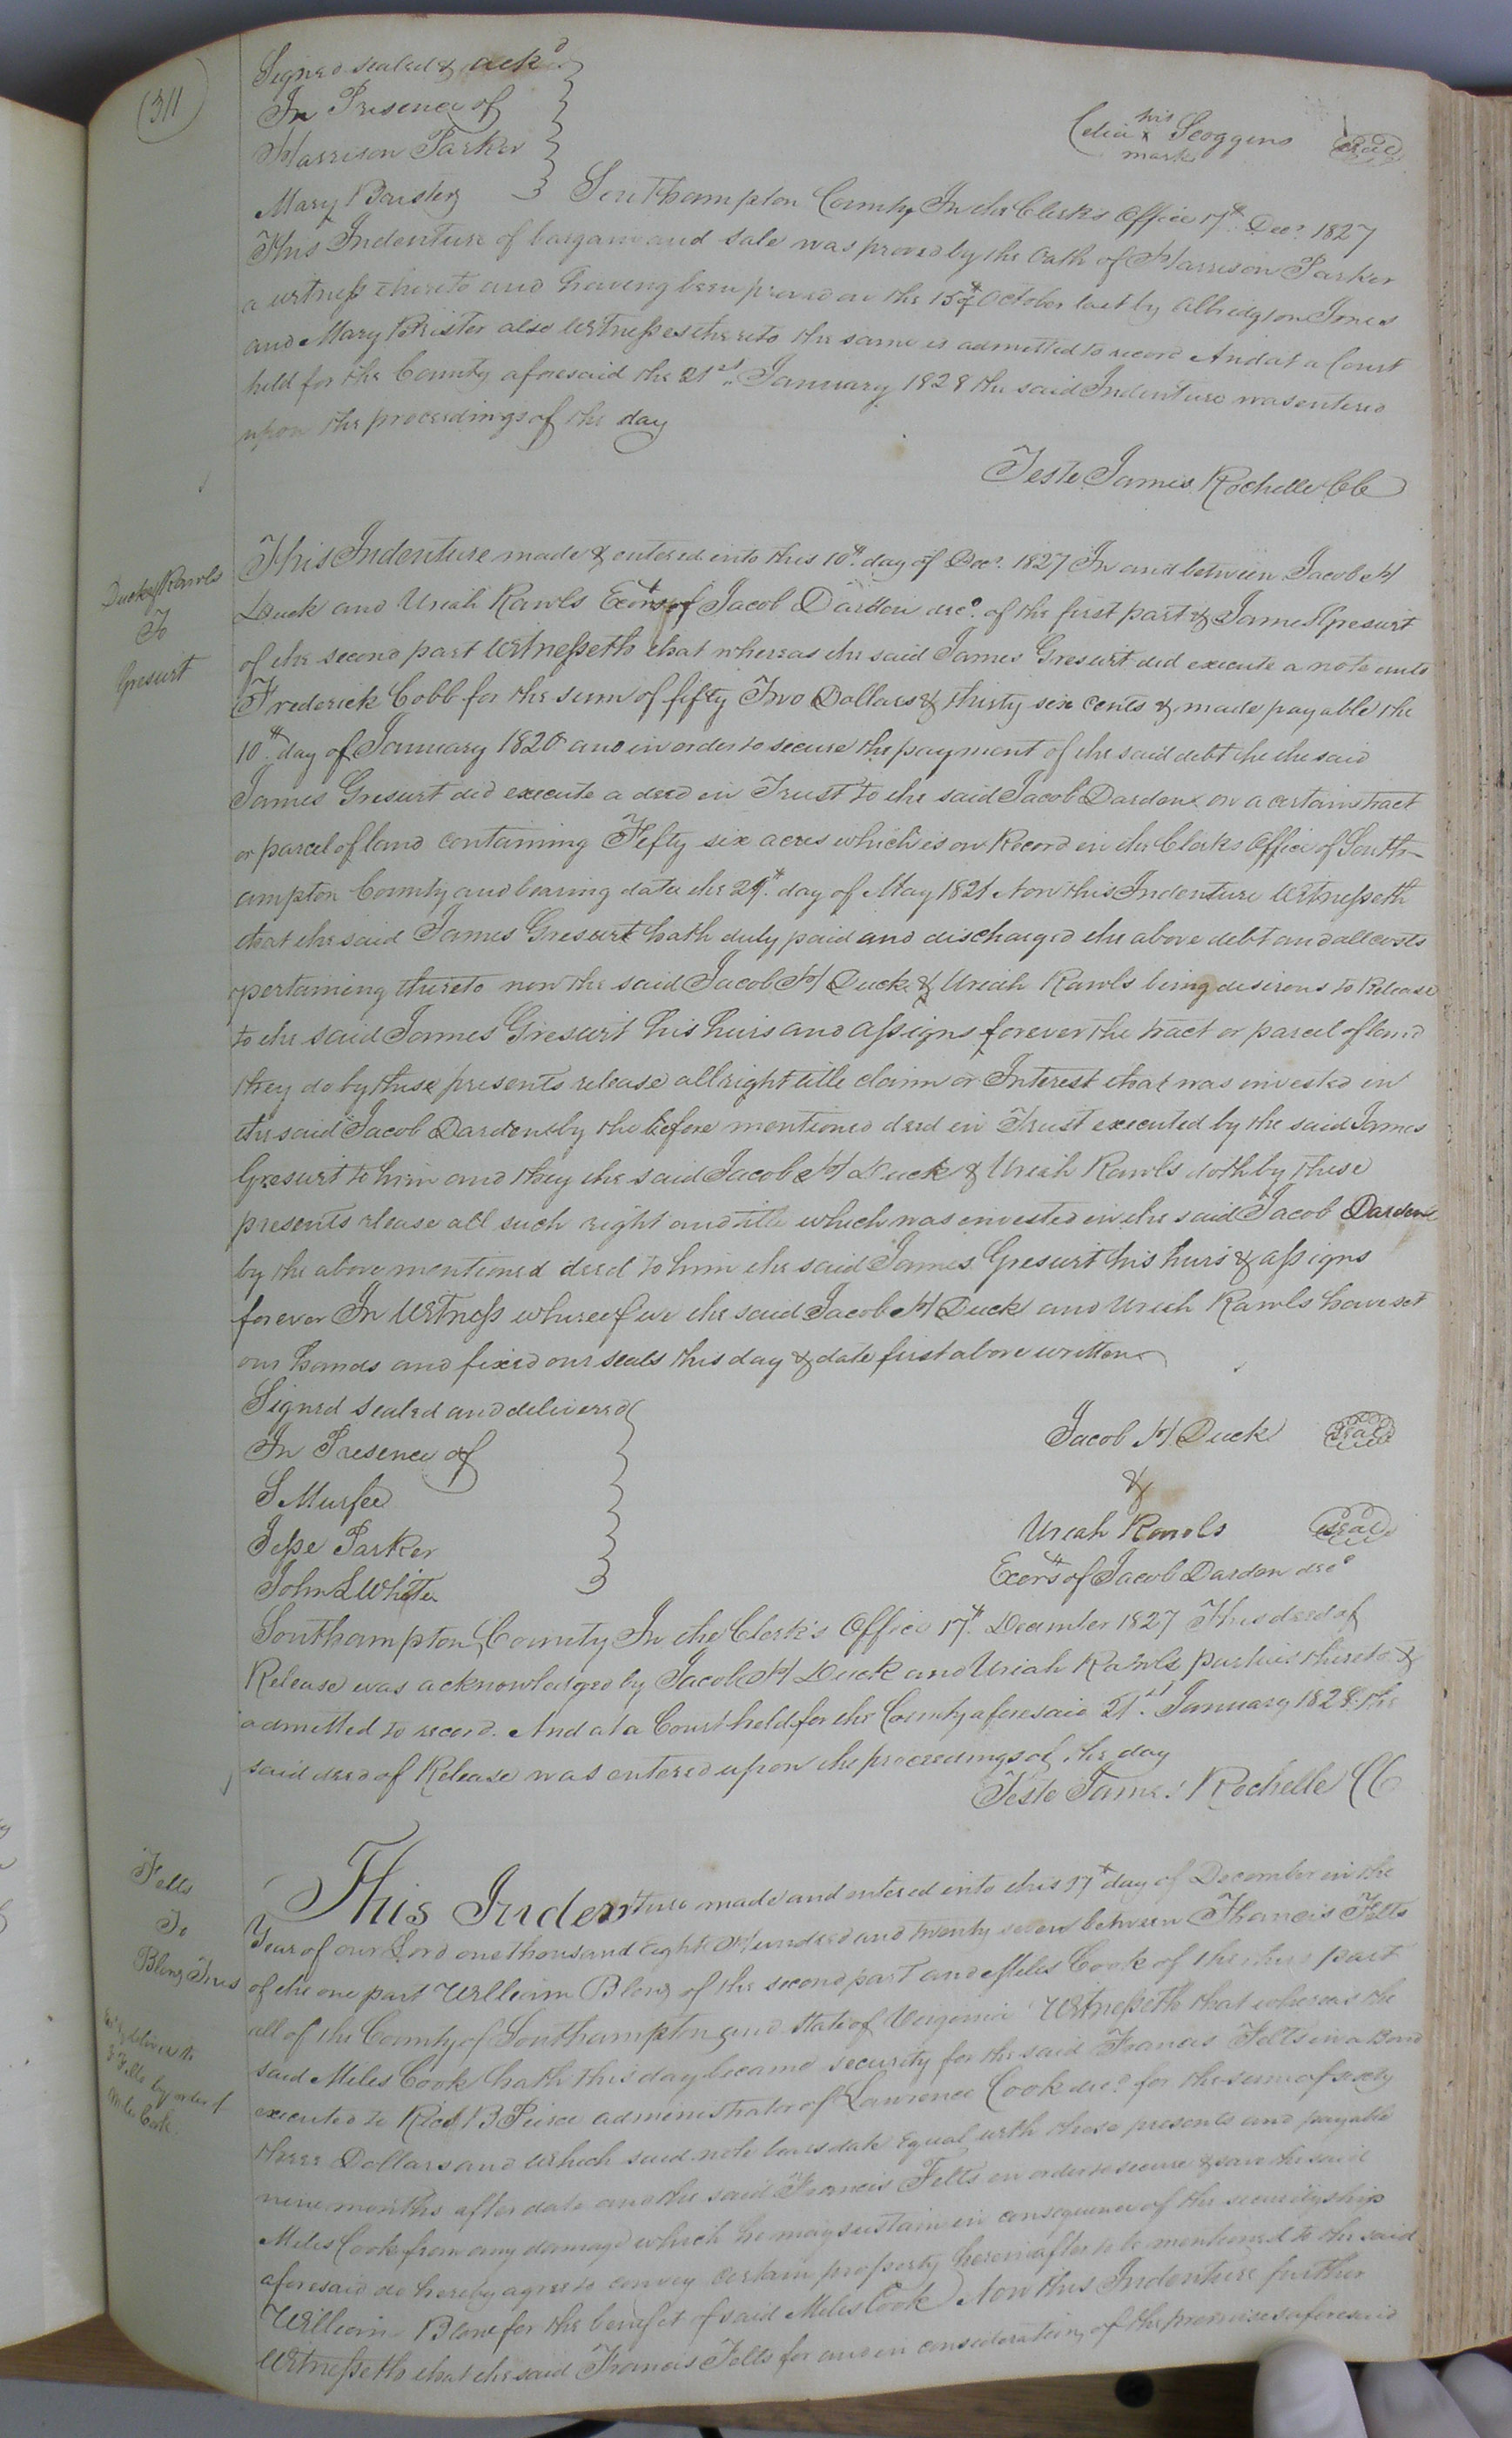 311
Signed sealed & ackd
In Presence of
Harrison Parker
Mary Brister
his
Celia x Scoggins seal
mark
Southampton County In the Clerks Office 17th Decr. 1827
This Indenture of bargain and sale was proved by the Oath of Harrison Parker
a witness thereto and having been proved on the 15th October last by Albridgton Jones
and Mary Brister also Witnesses thereto the same is admitted to record And at a Court
held for the County aforesaid the 21st January 1828 the said Indenture was entered
upon the proceedings of the day
Teste James Rochelle CC
Duck & Rawls
To
Gresurt
This Indenture made & entered into this 10th day of Decr. 1827 In and between Jacob H
Duck and Uriah Rawls Exors of Jacob Darden decd. of the first part & James Gresurt
of the second part Witnesseth that whereas the said James Gresurt did execute a note unto
Frederick Cobb for the sum of fifty Two Dollars & thirty six cents & made payable the
10th day of January 1820 and in order to secure the payment of the said debt he the said
James Gresurt did execute a deed in Trust to the said Jacob Darden on a certain tract
or parcel of land containing Fifty six acres which is on Record in the Clerks Office of South-
ampton County and bearing date the 29th day of May 1821 Now this Indenture Witnesseth
that the said James Gresurt hath duly paid and discharged the above debt and all costs
pertaining thereto now the said Jacob H Duck & Uriah Rawls being desirous to Release
to the said James Gresurt his heirs and assigns forever the tract or parcel of land
they do by these presents release all right title claim or Interest that was invested in
the said Jacob Darden by the before mentioned deed in Trust executed by the said James
Gresurt to him and they the said Jacob H Duck & Uriah Rawls doth by these
presents release all such right and title which was invested in the said Jacob Darden
by the above mentioned deed to him the said James Gresurt his heirs & assigns
forever In Witness whereof we the said Jacob H Duck and Uriah Rawls have set
our hands and fixed our seals this day & date first above written
Signed sealed and delivered
In Presence of
S Murfee
Jesse Parker
John L White
Jacob H Duck seal
&
Uriah Rawls seal
Exors of Jacob Darden decd
Southampton County In the Clerk's Office 17th December 1827 This deed of
Release was acknowledged by Jacob H Duck and Uriah Rawls parties thereto &
admitted to record. And at a Court held for the County aforesaid 21st January 1828 the
said deed of Release was entered upon the proceedings of the day
Teste James Rochelle CC
Felts
To
Blow Trus
delivered to
F Felts by order of
Miles Cook.
This Indenture made and entered into this 17th day of December in the
Year of our Lord one thousand Eight Hundred and twenty seven between Francis Felts
of the one part William Blow of the second part and Miles Cook of the third part
all of the County of Southampton and state of Virginia Witnesseth that whereas the
said Miles Cook hath this day became security for the said Francis Felts in a Bond
executed to Richd B Peirce administrator of Lawrence Cook decd for the sum of sixty
three Dollars and which said note bears date Equal with these presents and payable
nine months after date and the said Francis Felts in order to secure & save the said
Miles Cook from any damage which he may sustain in consequence of the securityship
aforesaid do hereby agree to convey certain property hereinafter to be mentioned to the said
William Blow for the benefit of said Miles Cook Now this Indenture further
Witnesseth that the said Francis Felts for and in consideration of the promises aforesaid